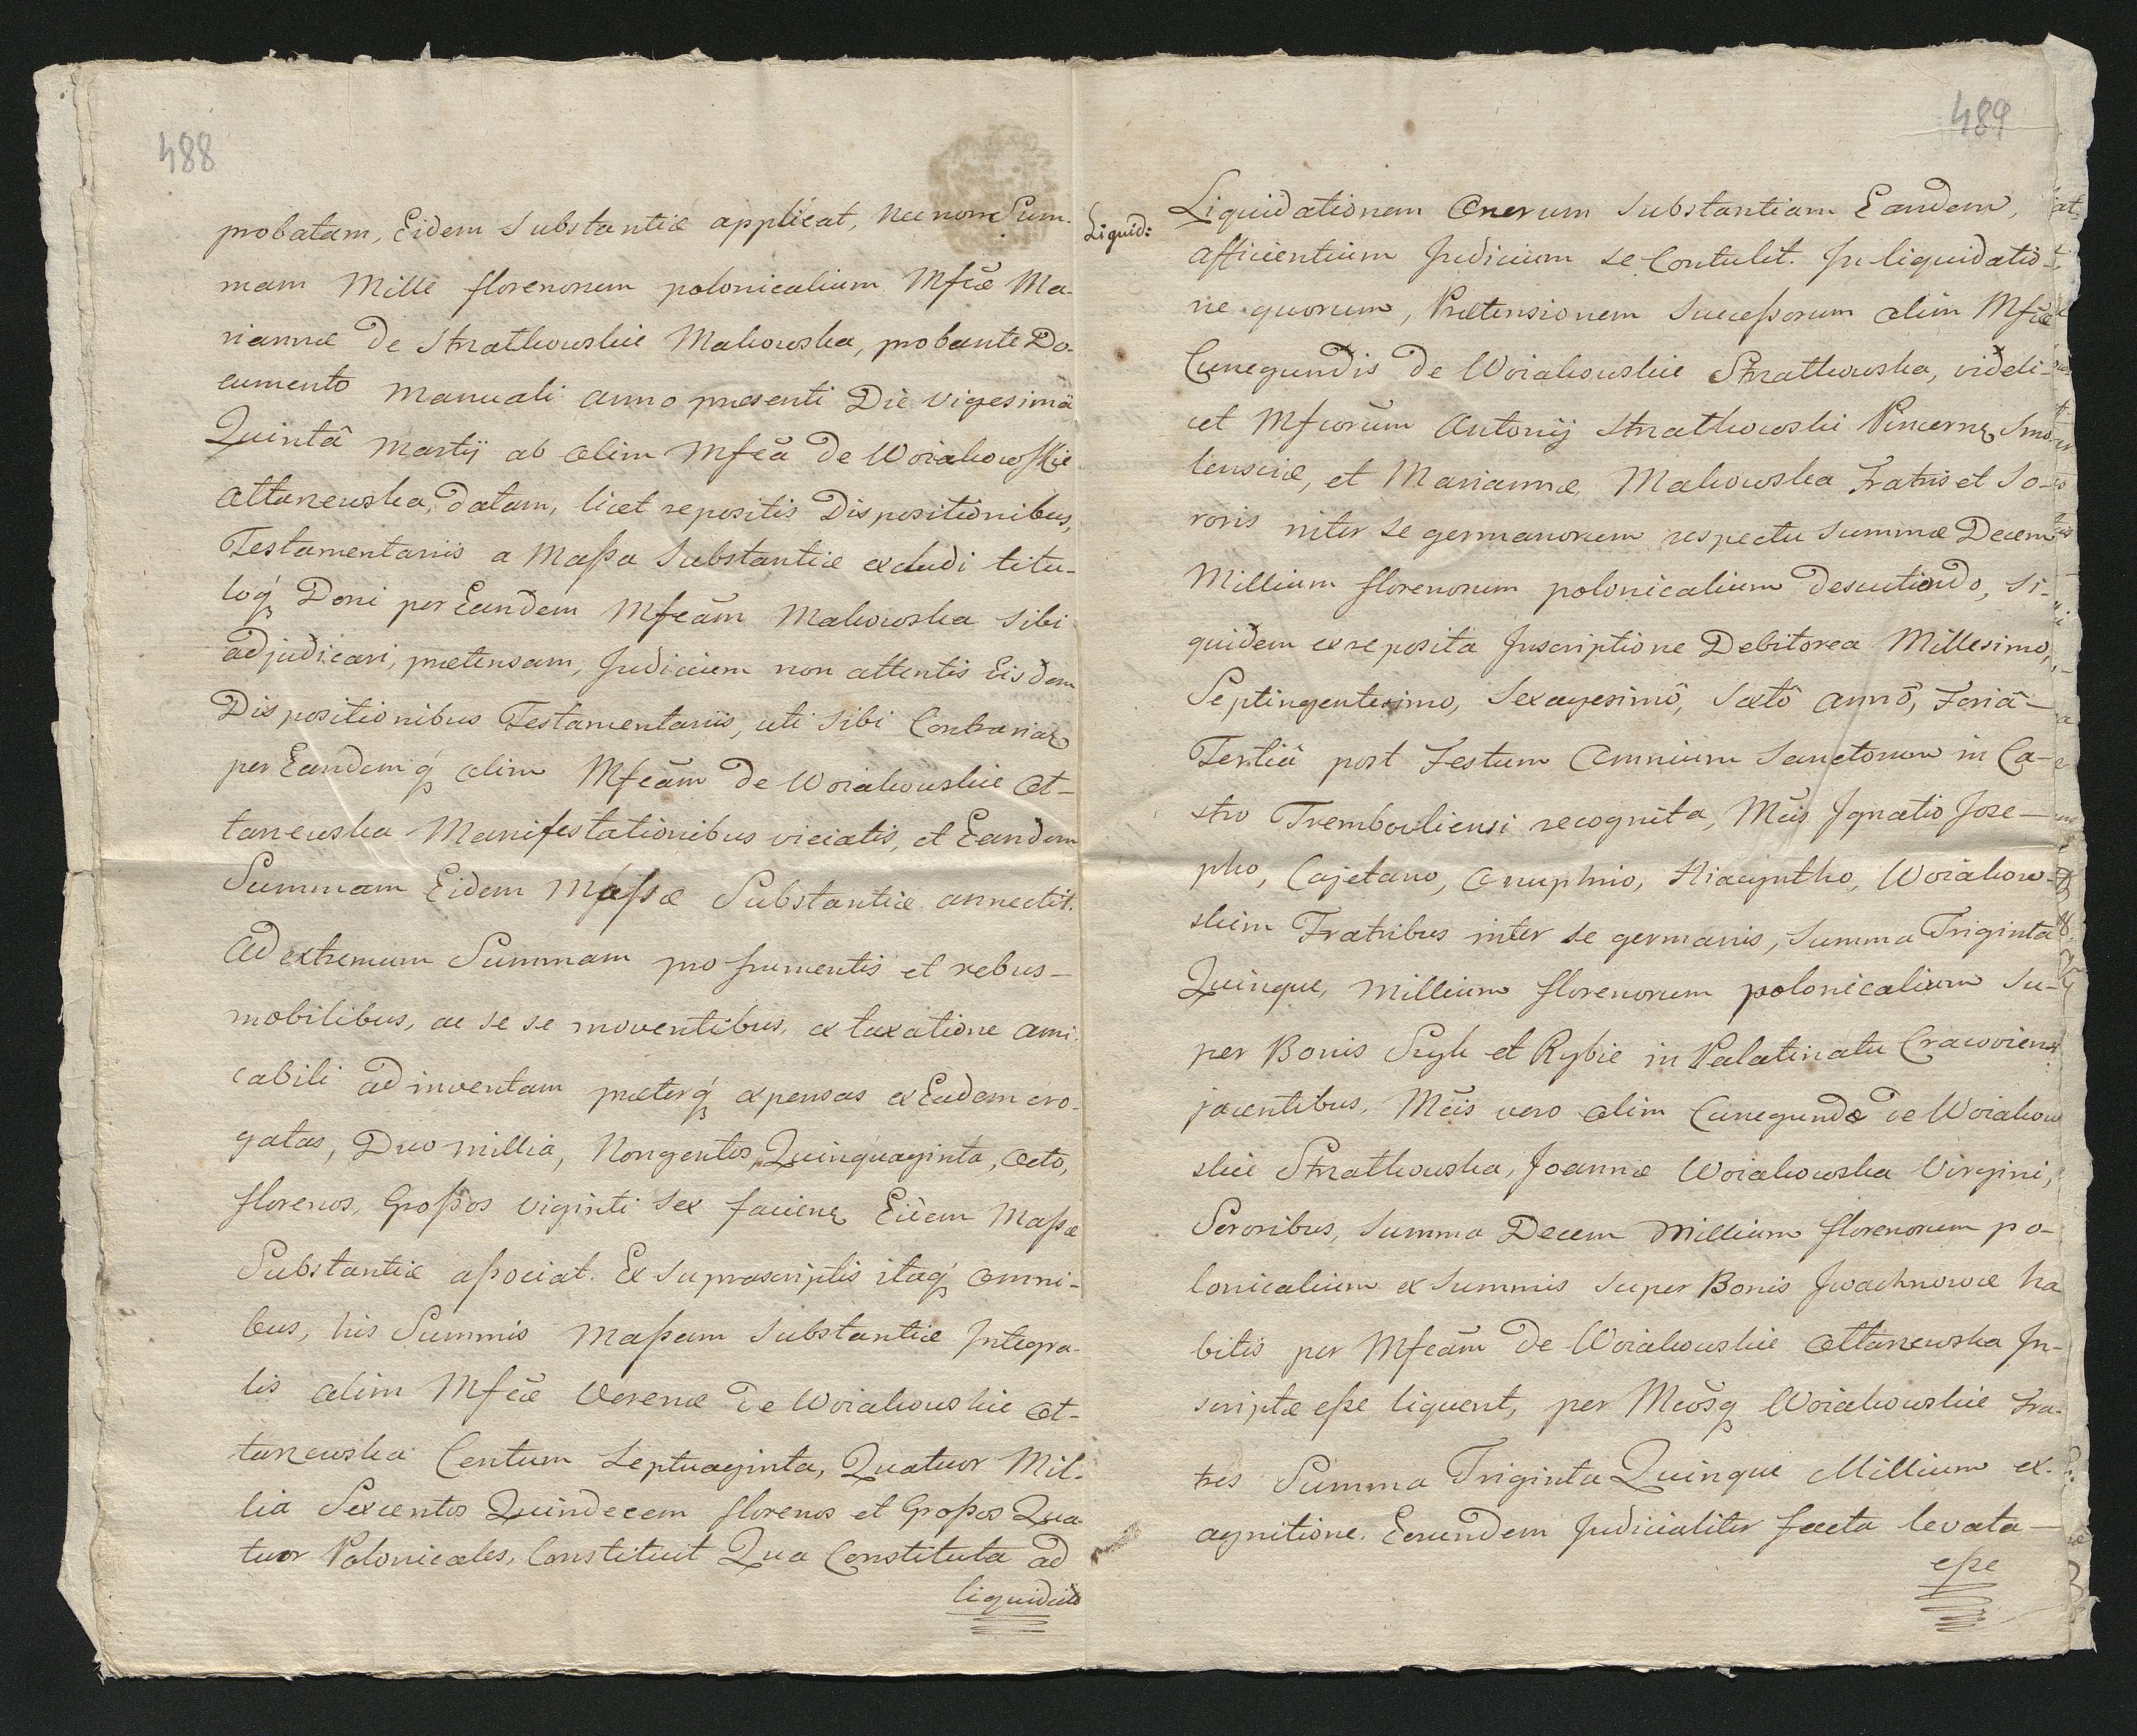 488
probatam, Eidem Substantiæ applicat, nec non Sum-
mam Mille florenorum polonicalium Mfcæ Ma-
riannæ de Strathowskie Makowska, probante Do-
cumento Manuali anno præsenti Die vigesimâ
Quintâ Martij ab olim Mfcã de Woiakowskie
Ottanewska, datam, licet repositis Dispositionibus,
Testamentariis a Massa Substantiæ excludi titu-
loq́ Doni per Eandem Mfcam Makowska sibi
adjudicari, prætensam, Judicium non attentis Eisdem
Dispositionibus Testamentariis, uti sibi Contrariaz
per Eandemq́ olim Mfcam de Woiakowskie Ot-
tanewska Manifestationibus viciatis, et Eandem
Summam Eidem Massæ Substantiæ annectit.
Ad extremum Summam pro frumentis et rebus-
mobilibus, ac se se moventibus, ex taxatione ami-
cabili adinventam præterq́ expensas ex Eadem ero-
gatas, Duo millia, Nongentos, Quinquaginta, Octo,
florenos, Grossos viginti Sex facienz Eidem Massæ
Substantiæ associat. Ex suprascriptis itaq́ omni-
bus, his Summis Massam Substantiæ Integra-
lis olim Mfcæ Verenæ de Woiakowskie Ot-
tanewska Centum Septuaginta, Quatuor Mil-
lia Sexcentos Quindecem florenos et Grossos Qua
tuor Polonicales, Constituit Qua Constituta ad
liquidaõ
489
Liquid:
Liquidationem Onerum Substantiam Eandem,
afficientium Judicium se Contulit. In liquidatio-
ne quorum, Prætensionem Successorum olim Mfcæ
Cunegundis de Woiakowskie Strathowska, videli-
cet Mfcorum Antonij Strathowski Pincernæ Smo-
lensciæ, et Mariannæ Makowska Fratris et So-
roris inter se germanorum respectu Summæ Decem
Millium florenorum polonicalium descutiendo, si-
quidem ex reposita Inscriptione Debitorea Millesimo,
Septingentesimo, Sexagesimô, Sextô annô, Feriâ-
Tertiâ post Festum Omnium Sanctorum in Ca-
stro Trembouliensi recognita, Mcis Ignatio Jose-
pho, Cajetano, Onuphrio, Hiacyntho, Woiakow-
skim Fratribus inter se germanis, Summa Triginta
Quinque, Millium florenorum polonicalium Su-
per Bonis Szyk et Rybie in Palatinatu Cracoviensi
jacentibus, Mcis vero olim Cunegundæ de Woiakow
skie Strathowska, Joannæ Woiakowska Virgini,
Sororibus, Summa Decem Millium florenorum po-
lonicalium ex Summis super Bonis Iwachnowce ha
bitis per Mfcam de Woiakowskie Ottanewska In-
scriptæ esse liquent, per Mcosq́ Woiakowskie Fra-
tres Summa Triginta Quinque Millium ex-
agnitione Eorundem Judicialiter facta levata-
esse